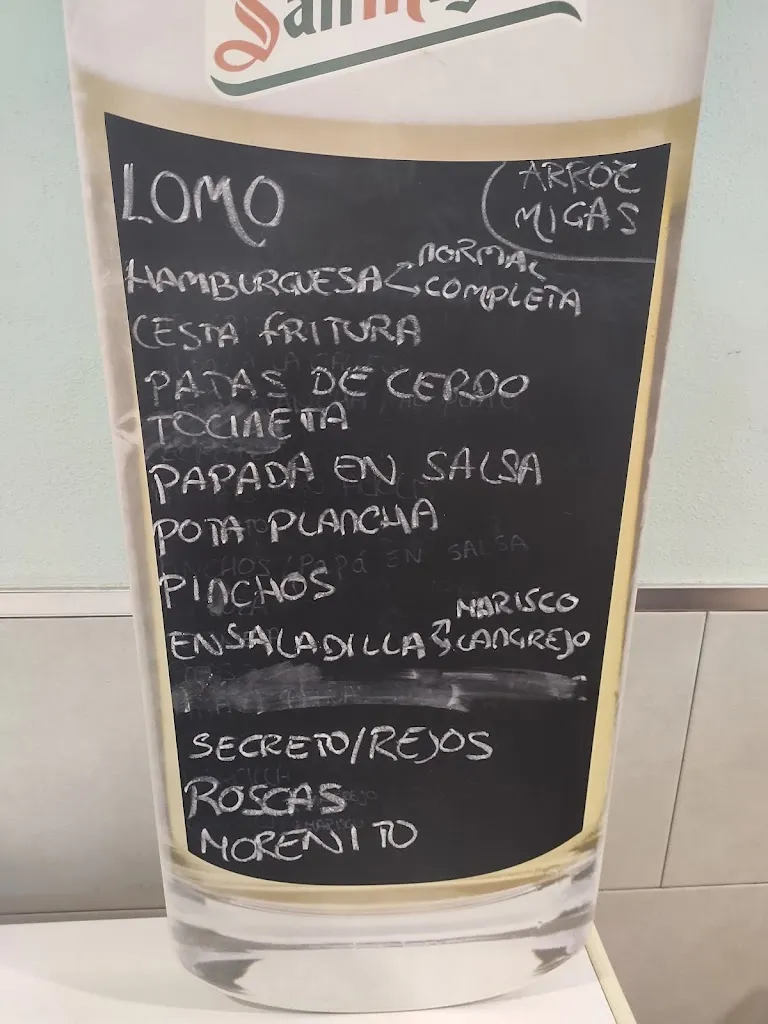 San Mig
LOMO
ARROZ
MIGAS
HAMBURGUESA NORMAL
COMPLETA
CESTA FRITURA
PATAS DE CERDO
TOCINETA
PAPADA EN SALSA
POTA PLANCHA
PINCHOS
ENSALADILLA MARISCO
CANGREJO
SECRETO/REJOS
ROSCAS
MORENITO